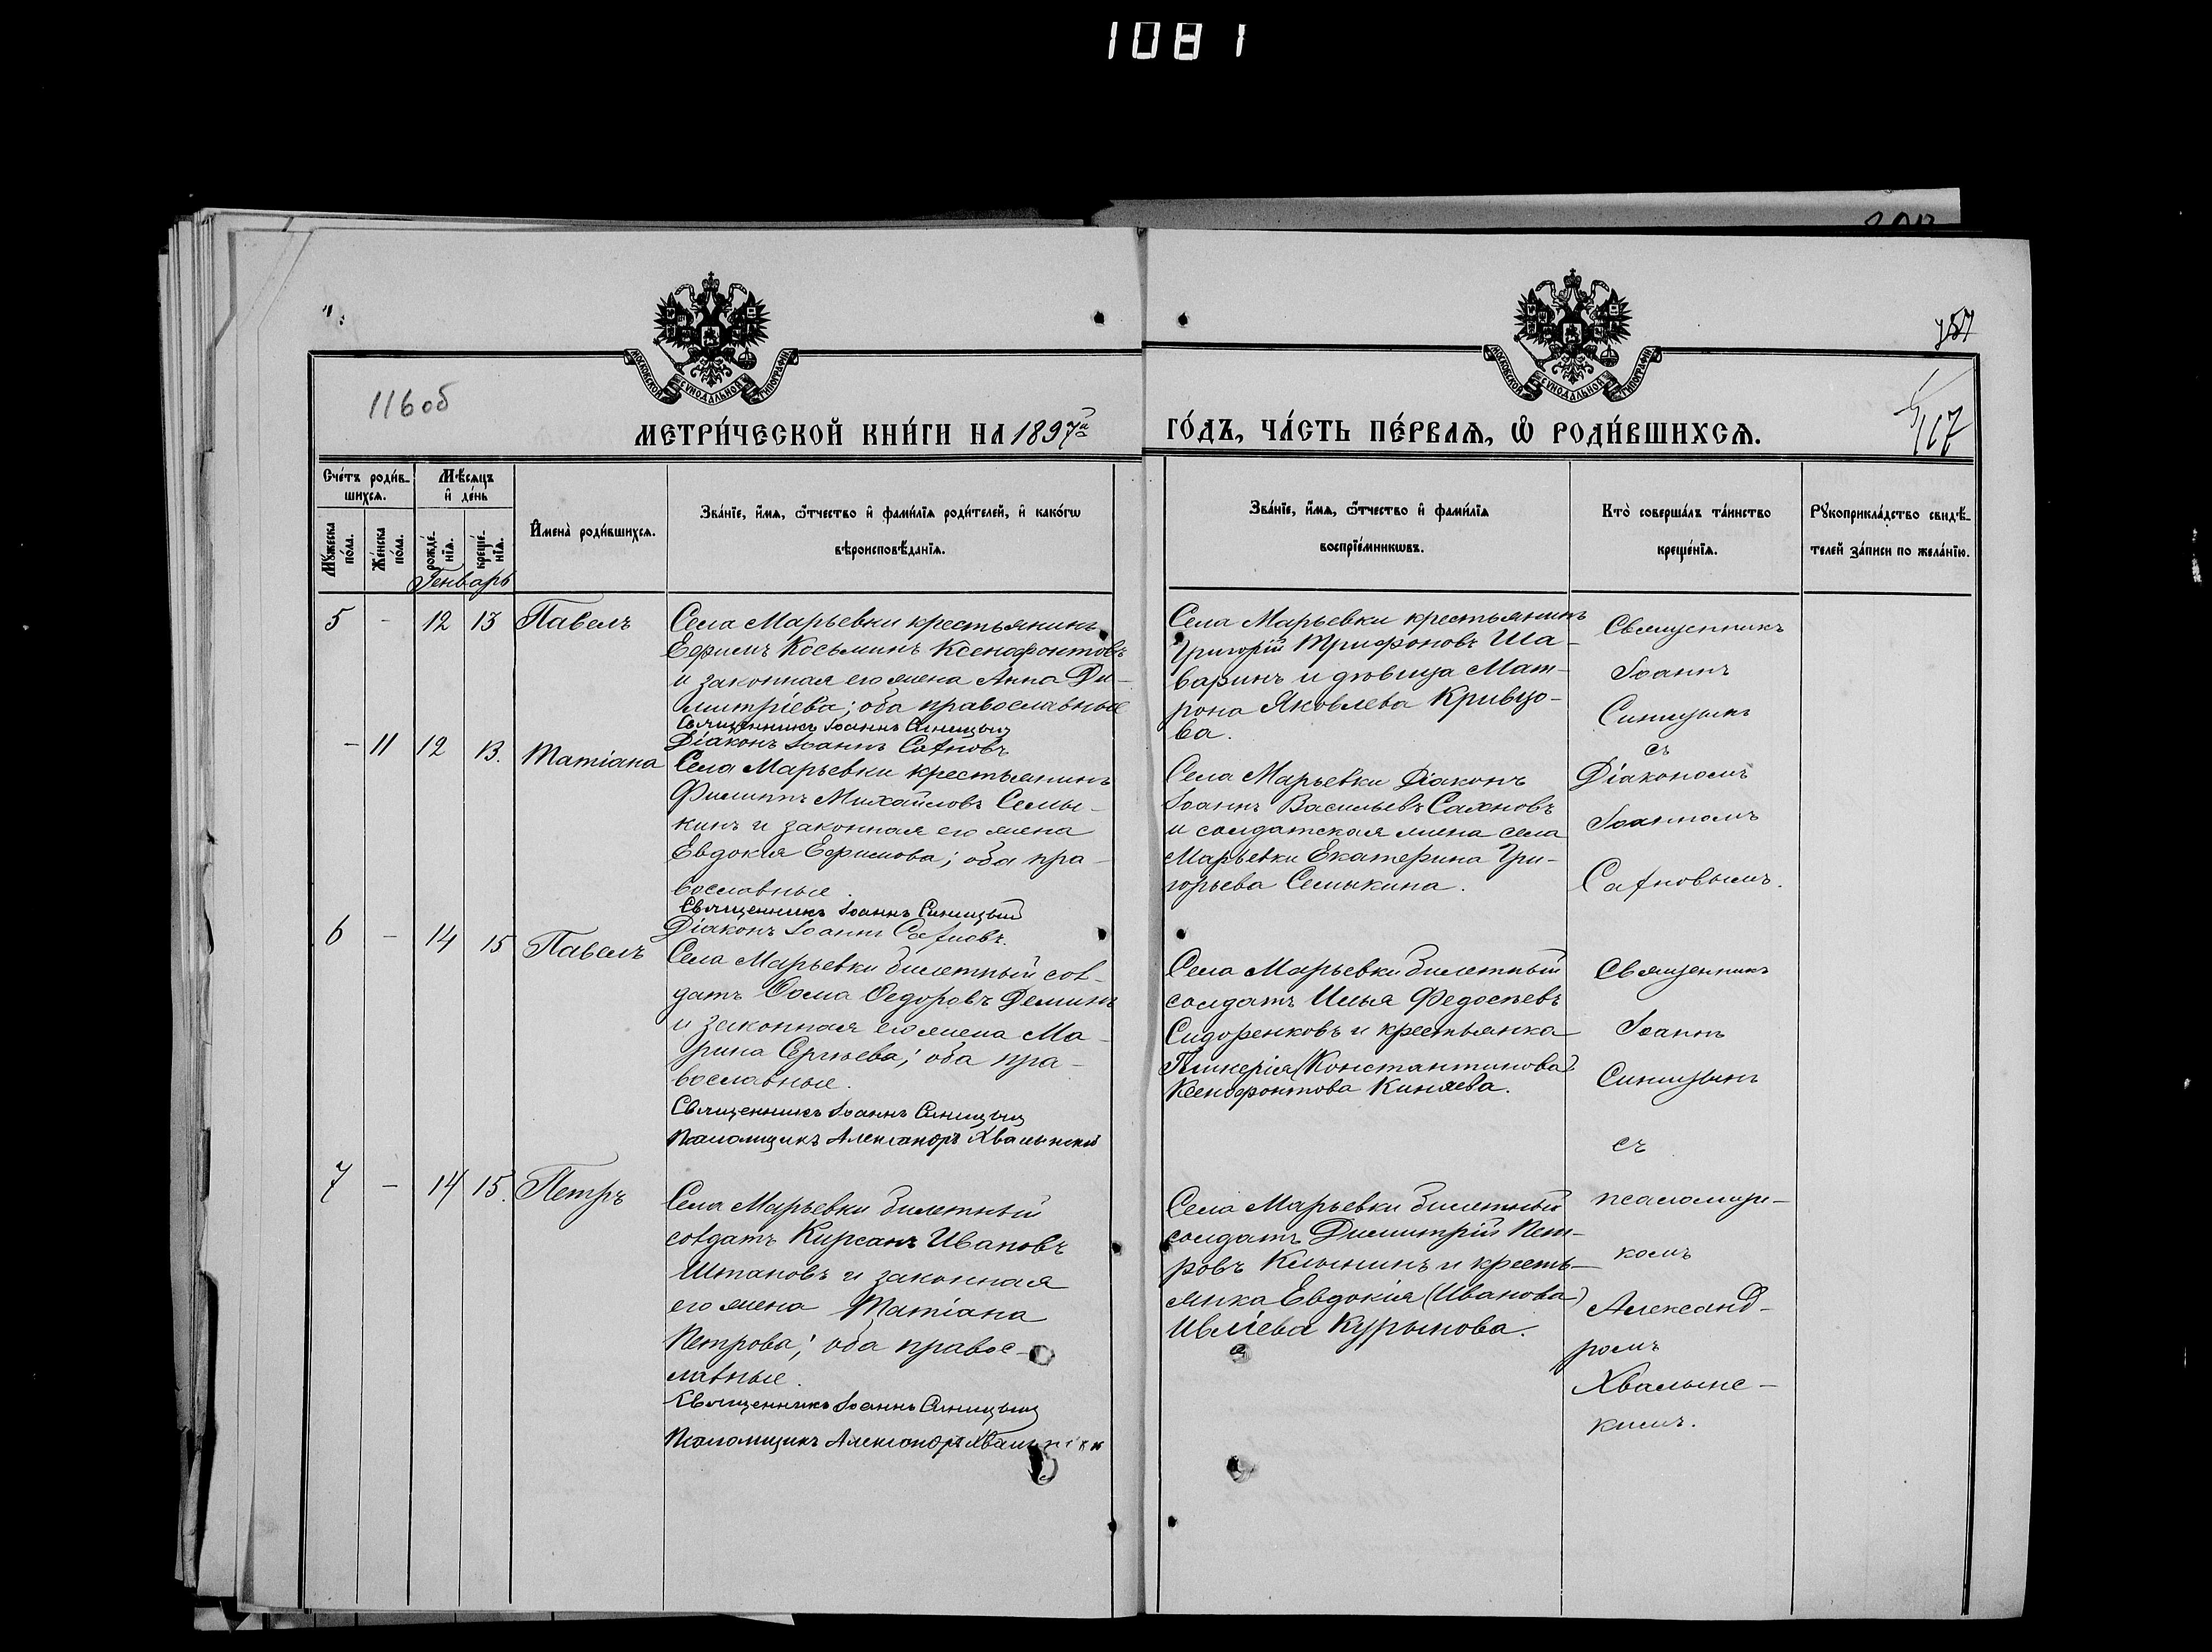 1081
757
116об
117
МОСКОВСКОЙ СѴНОДАЛЬНОЙ ТИПОГРАФІИ
МОСКОВСКОЙ СѴНОДАЛЬНОЙ ТИПОГРАФІИ
МЕТРИ́ЧЕСКОЙ КНИ́ГИ НА 1897й
ГО́ДЪ, ЧА́СТЬ ПЕ́РВАѦ, Ѽ РОДИ́ВШИХСѦ.
Сче́тъ роди́в-
шихсѧ.
Мѣ́сѧцъ
и҆ де́нь
Мꙋ́жеска
по́ла.
Же́нска
по́ла.
рожде́-
нїѧ.
креще́-
нїѧ.
Генварь
И҆мена̀ роди́вшихсѧ.
Зва́нїе, и҆́мѧ, ѻ҆́тчество и҆ фами́лїѧ роди́телей, и҆ како́гѡ
вѣроисповѣ́данїѧ.
Зва́нїе, и҆́мѧ, ѻ҆́тчество и҆ фами́лїѧ
воспрїе́мникѡвъ.
Кто̀ соверша́лъ та́инство
креще́нїѧ.
Рꙋкоприкла́дство свидѣ́-
телей за́писи по жела́нїю.
5 - 12 13 Павелъ
Села Марьевки крестьянинъ
Ефимъ Косьминъ Ксенофонтовъ
и законная его жена Анна Ди-
митріева; оба православные
Священникъ Іоаннъ Синицынъ
Діаконъ Іоаннъ Сахновъ
Села Марьевки крестьянинъ
Григорій Трифоновъ Ша-
варинъ и дѣвица Мат-
рона Яковлева Кривцо-
ва.
Священникъ
Іоаннъ
Синицынъ
съ
Діакономъ
Іоанномъ
Сахновымъ.
- 11 12 13. Татіана
Села Марьевки крестьянинъ
Филиппъ Михайловъ Семы-
кинъ и законная его жена
Евдокія Ефимова; оба пра-
вославные.
Священникъ Іоаннъ Синицынъ
Діаконъ Іоаннъ Сахновъ.
Села Марьевки Діаконъ
Іоаннъ Васильевъ Сахновъ
и солдатская жена села
Марьевки Екатерина Гри-
горьева Семыкина.
6 - 14 15 Павелъ
Села Марьевки билетный сол-
датъ Ѳома Ѳедоровъ Деминъ
и законная его жена Ма-
рина Сергѣева; оба пра-
вославные.
Священникъ Іоаннъ Синицынъ
Псаломщикъ Александръ Хвалынскій
Села Марьевки билетный
солдатъ Илья Федосѣевъ
Сидоренковъ и крестьянка
Гликерія (Константинова)
Ксенофонтова Киняева.
Священникъ
Іоаннъ
Синицынъ
съ
псаломщи-
комъ
Александ-
ромъ
Хвалынс-
кимъ.
7 - 14 15. Петръ
Села Марьевки билетный
солдатъ Кирсанъ Ивановъ
Штановъ и законная
его жена Татіана
Петрова; оба правос-
лавные.
Священникъ Іоаннъ Синицынъ
Псаломщикъ Александръ
Села Марьевки билетный
солдатъ Димитрій Пет-
ровъ Клынинъ и кресть-
янка Евдокія (Иванова)
Ивліева Курынова.